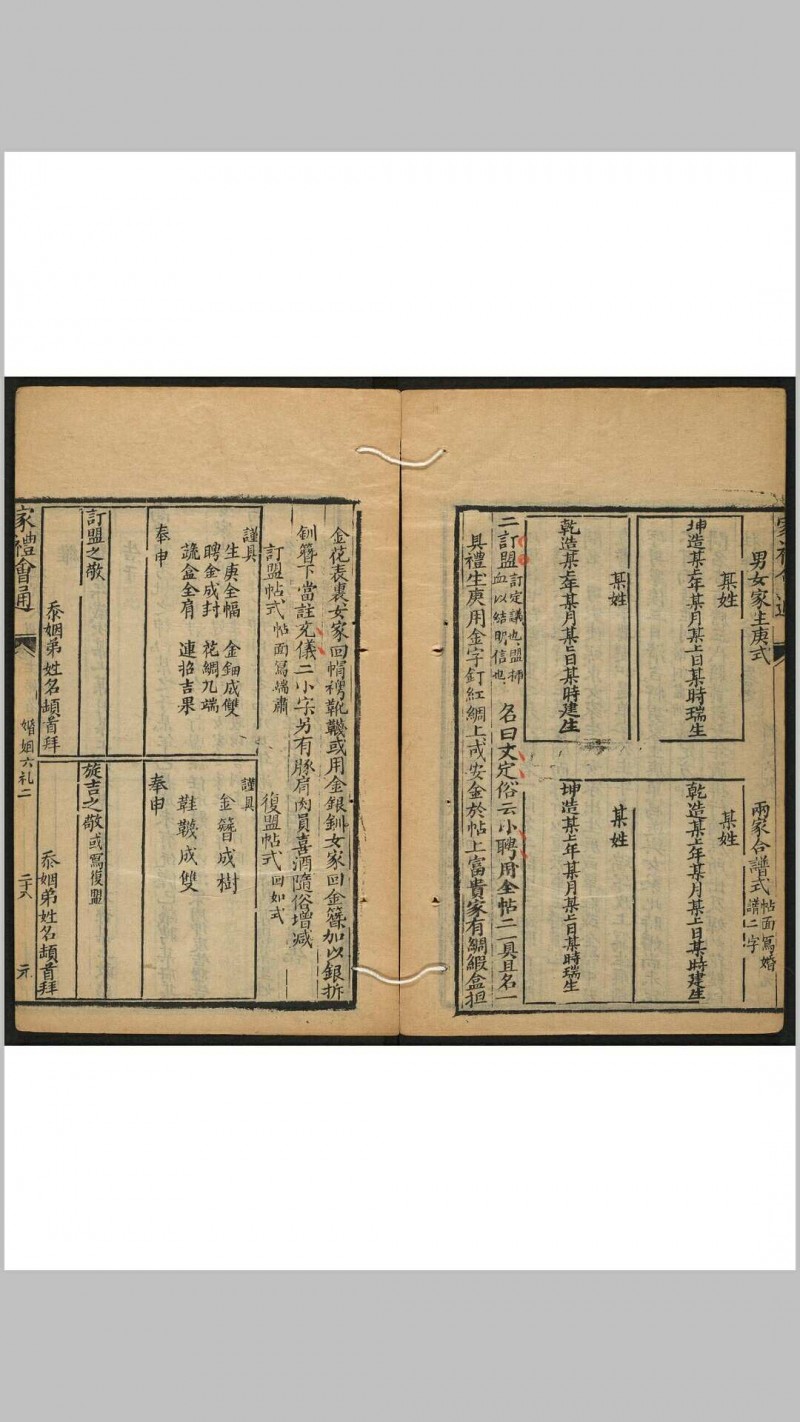 男女家生庚式
某姓
坤造某年某月某日某時瑞生
某姓
乾造某年某月某日某時建生
兩家合譜式
帖面寫婚
譜二字
某姓
乾造某年某月某日某時建生
某姓
坤造某年某月某日某時瑞生
二訂盟
訂定議也盟
血以結明信也
名曰文定俗云小聘用全帖二一具且名一
具禮生庚用金字釘紅綢上或安金於帖上富貴家有綢緞盒担
金花表裏女家回靴韈或用金銀釧女家回金簪加以銀折
釧簪下當註充儀二小字另有豚肩肉員喜酒隨俗增減
訂盟帖式
帖面寫端肅
謹具
生庚全幅 金鈿成雙
聘金成封 花綢九端
蔬盒全肩 連招吉果
奉申
訂盟之敬
忝姻弟姓名頓首拜
復盟帖式
回如式
謹具
金簪成樹
鞋韈成雙
奉申
旋吉之敬
或寫復盟
忝姻弟姓名頓首拜
家禮會通
婚姻六礼二
二十六